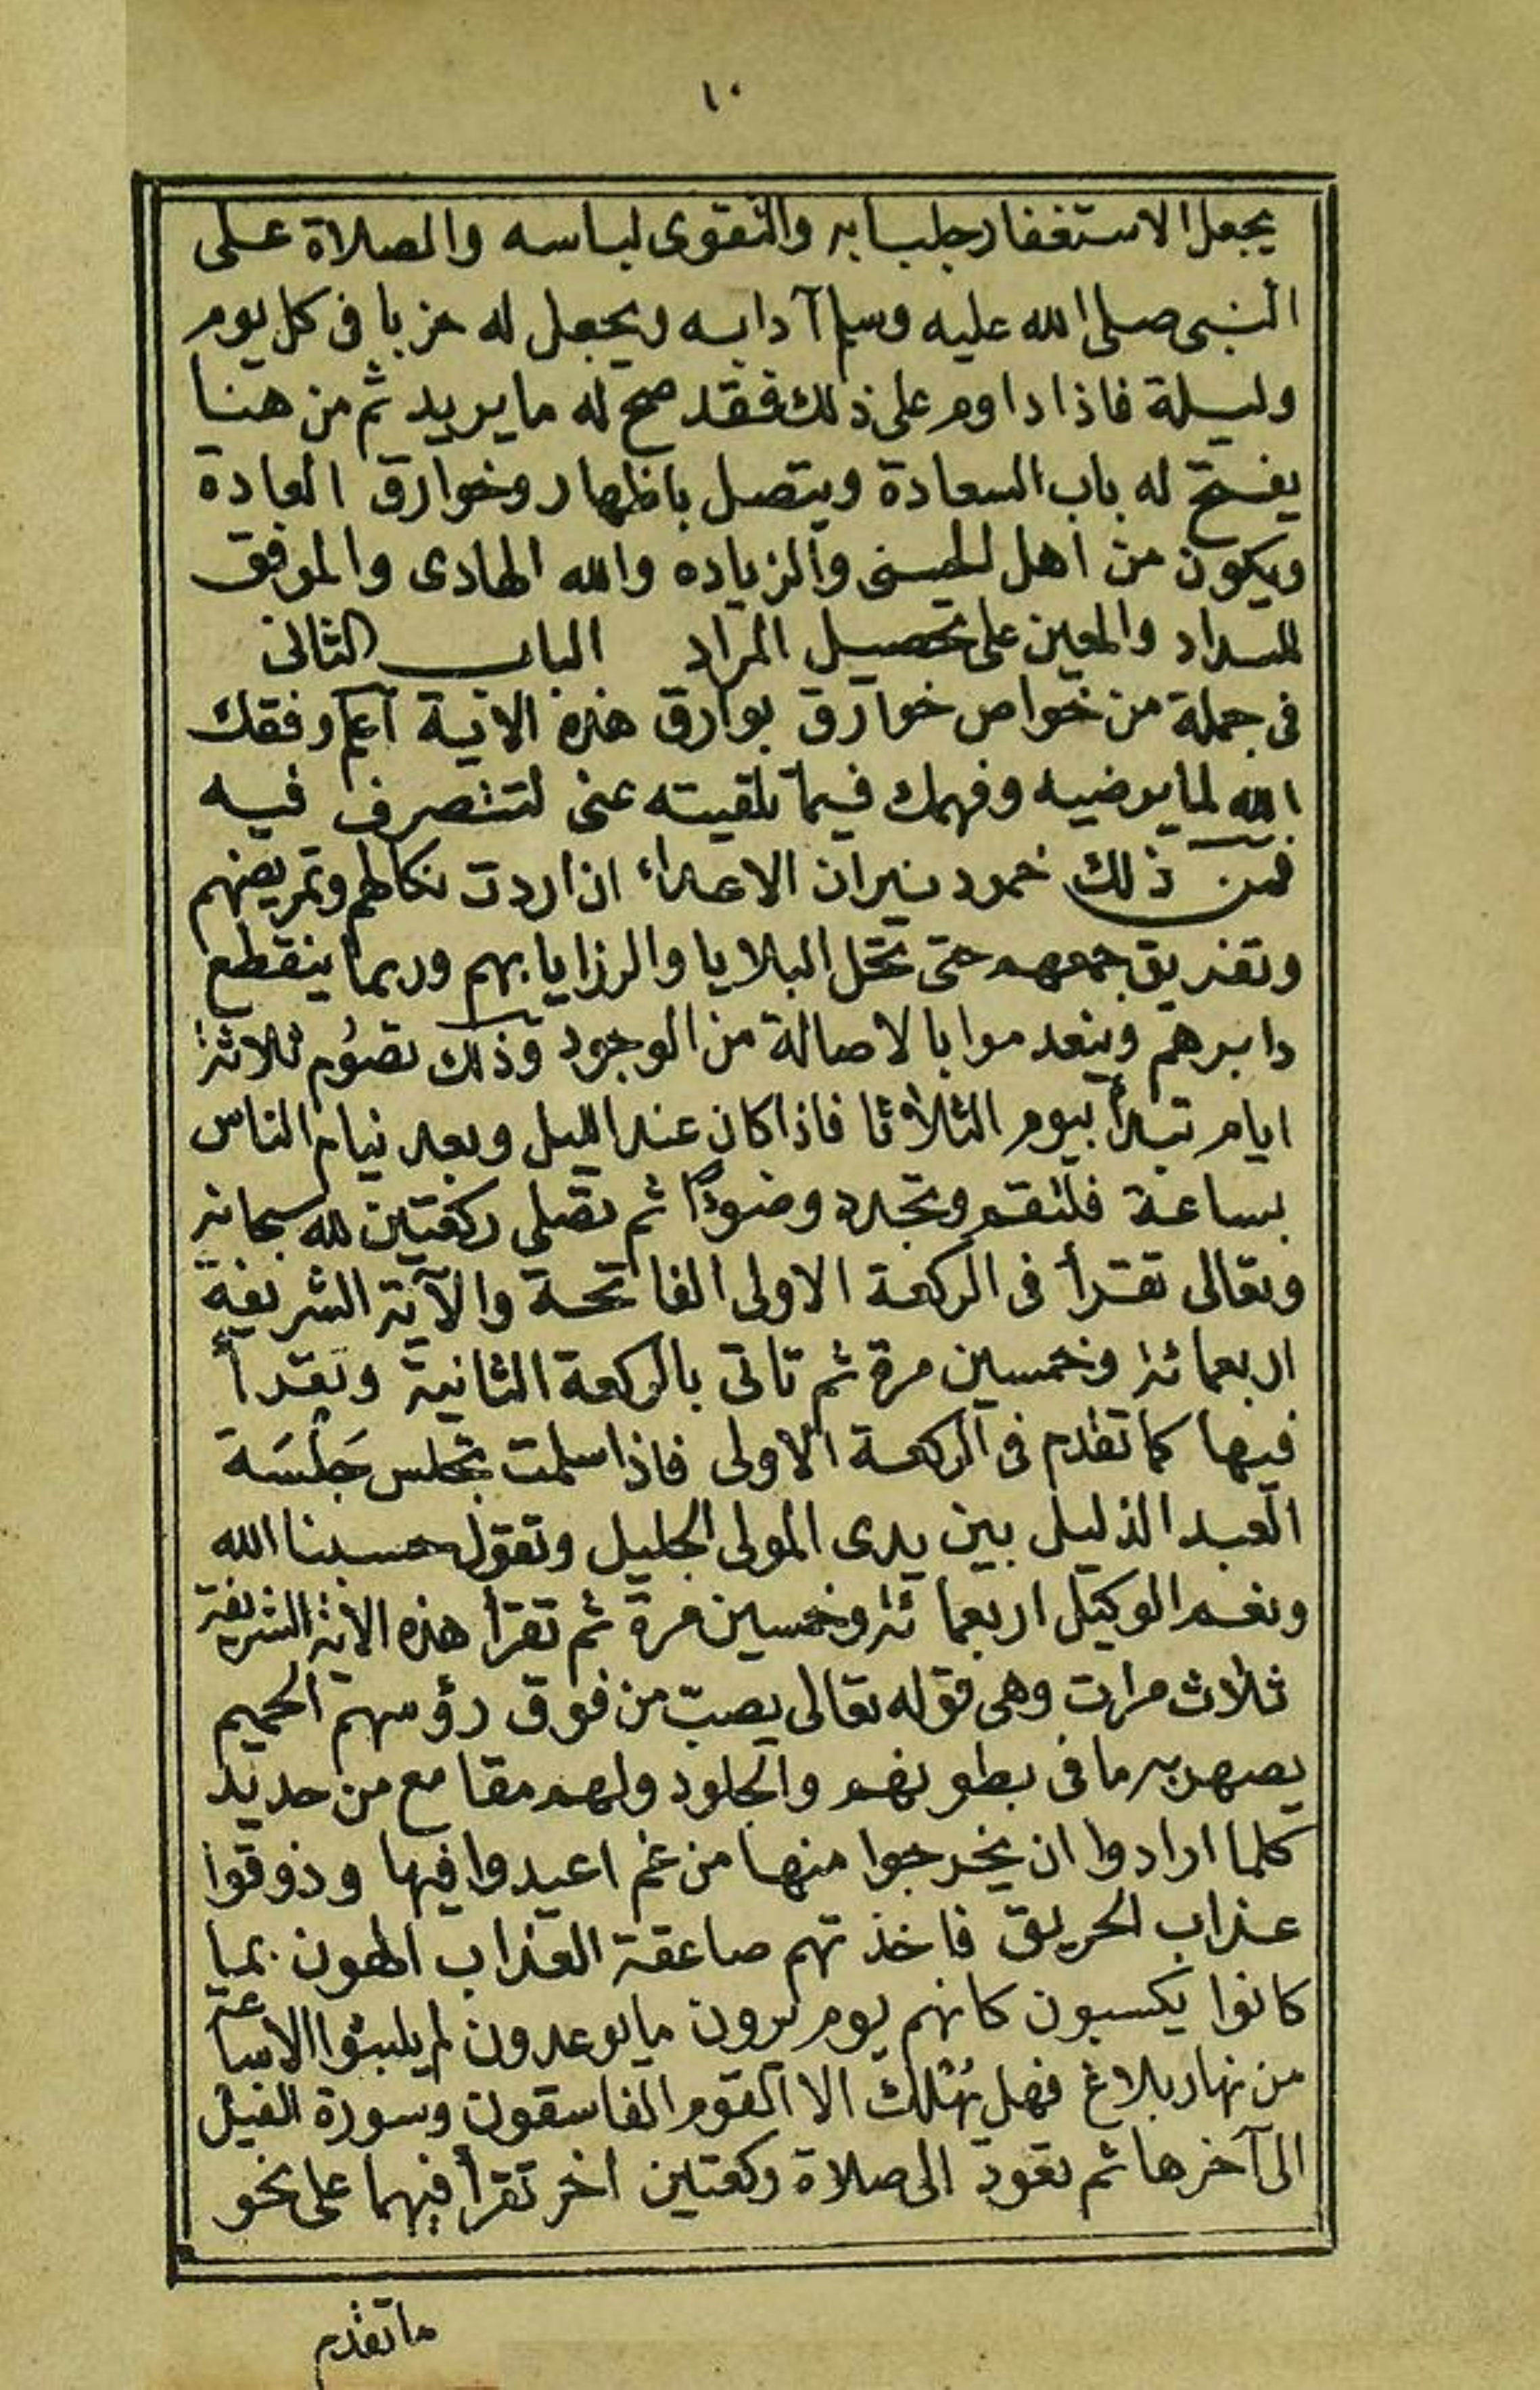 ١٠
يجعل الاستغفار جلبابه والتقوى لباسه والصلاة على
النبى صلى الله عليه وسلم آدابه ويجعل له حزبا فى كل يوم
وليلة فاذا داوم على ذلك فقد صح له ما يريد ثم من هنا
يفتح له باب السعادة ويتصل باظهار وخوارق العادة
ويكون من اهل الحسنى والزياده والله الهادى والموفق
للسداد والمعين على تحصيل المراد الباب الثانى
فى جملة من خواص خوارق بوارق هذه الاية اعلم وفقك
الله لما يرضيه وفهمك فيما تلقيته عنى لتتصرف فيه
فمن ذلك خمود نيران الاعداء ان اردت نكالهم وتمريضهم
وتفريق جمعهم حتى تحل البلايا والرزايا بهم وربما ينقطع
دابرهم وينعدموا بالاصالة من الوجود وذلك تصوم ثلاثة
ايام تبدأ بيوم الثلاثا فاذا كان عند الليل وبعد نيام الناس
بساعة فلتقم وتجدد وضوءًا ثم تصلى ركعتين لله سبحانه
وتعالى تقرأ فى الركعة الاولى الفاتحة والآية الشريفة
اربعمائة وخمسين مرة ثم تاتى بالركعة الثانية وتقرأ
فيها كما تقدم فى الركعة الاولى فاذا سلمت تجلس جَلْسَة
العبد الذليل بين يدى المولى الجليل وتقول حسبنا الله
ونعم الوكيل اربعمائة وخمسين مرة ثم تقرأ هذه الاية الشريفة
ثلاث مرات وهى قوله تعالى يصبّ من فوق رؤسهم الحميم
يصهر به ما فى بطونهم والجلود ولهم مقامع من حديد
كلما ارادوا ان يخرجوا منها من غم اعيدوا فيها وذوقوا
عذاب الحريق فاخذتهم صاعقة العذاب الهون بما
كانوا يكسبون كانهم يوم يرون ما يوعدون لم يلبثوا الاساعة
من نهار بلاغ فهل يُهلك الا القوم الفاسقون وسورة الفيل
الى آخرها ثم تعود الى صلاة ركعتين اخر تقرأ فيهما على نحو
ما تقدم